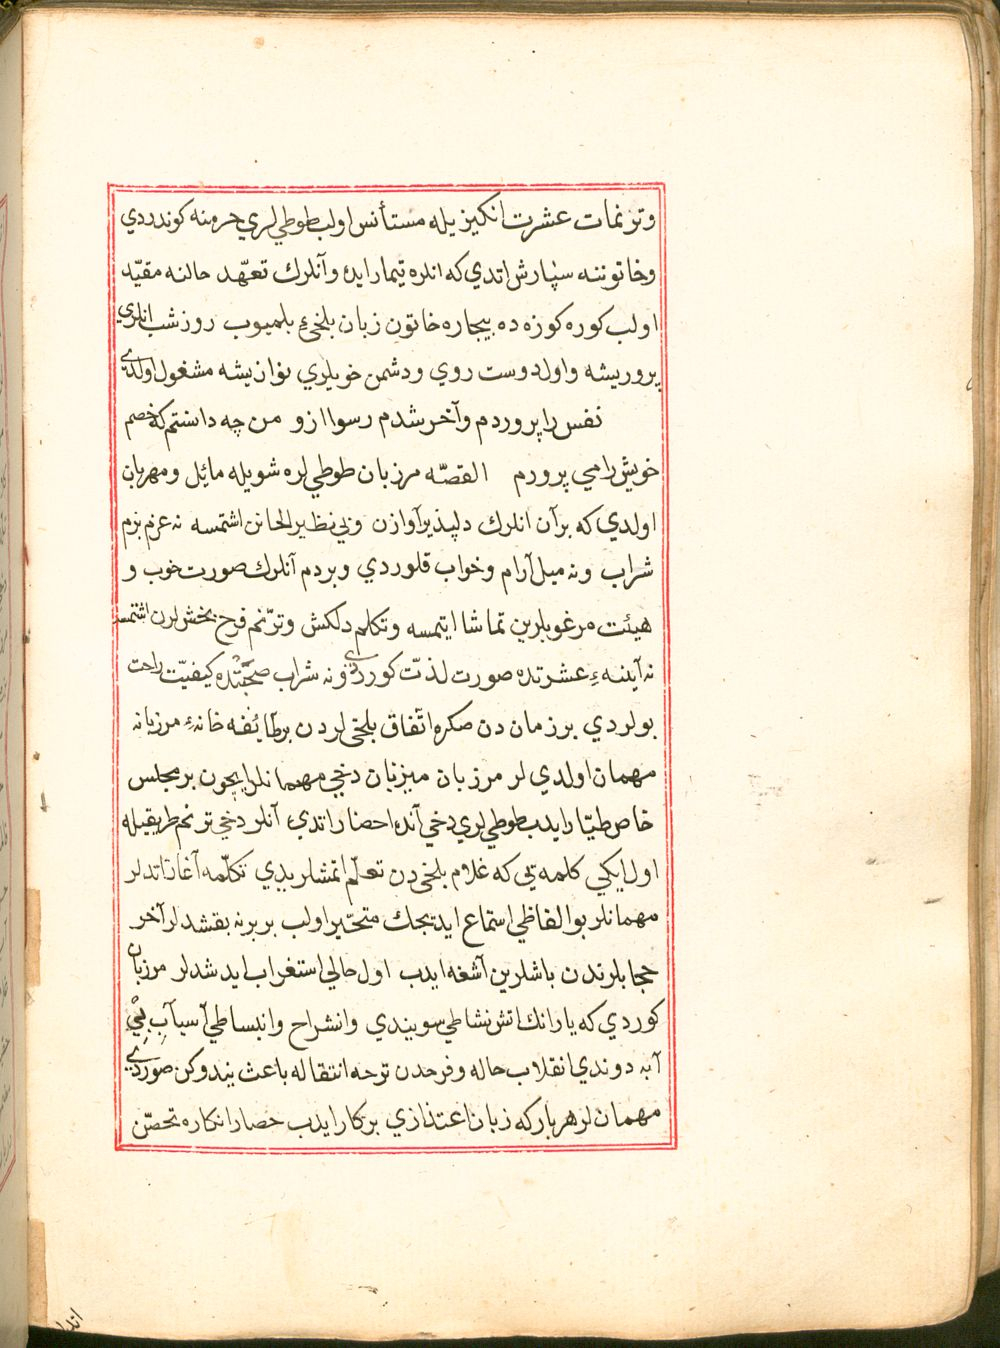 وترنمات عشرت انكيز يله مستأنس اولب طوطي لري حرمنه كوندردي
وخاتوننه سپارش اتدي كه انلره تيمار ايده وآنلرك تعهّد حالنه مقيّد
اولب كوره كوزه ده بيجاره خاتون زبان بلخىءِ بلميوب روز شب انلري
پروريشه واول دوست روي ودشمن خويلري نوازيشه مشغول اولدي
نفس را پروردم وآخر شدم رسوا ازو من چه دانستم كه خصم
خويش را مي پرورم القصّه مرزبان طوطي لره شويله مائِل ومهربان
اولدي كه بر آن انلرك دلپذير آوازن وبي نظير الحانن اشتمسه نه عزم بزم
شراب ونه ميل آرام وخواب قلوردي وبردم آنلرك صورت خوب و
هيئت مرغوبلرين تماشا ايتمسه وتكلم دلكش وترّنم فرح بخش لرن اشتمسه
نه آينهءِ عشرتده صورت لذّت كوردي ونه شراب صحبتده كيفيّت راحت
بولردي بر زمان دن صكره اتّفاق بلخى لردن بر طآئفه خانهءِ مرزبانه
مهمان اولدي لر مرزبان ميزبان دخي مهمانلر ايچون بر مجلس
خاص طيّار ايدب طوطي لري دخي آنده احضار اتدي آنلر دخي ترنم طريقيله
اول ايكي كلمه يي كه غلام بلخى دن تعلّم اتمشلريدي تكلّمه آغاز اتدلر
مهمانلر بو الفاظي استماع ايديجك متحيّر اولب بر برنه بقشدلر آخر
حجابلرندن باشلرين آشغه ايدب اول حالي استغراب ايدشدلر مرزبان
كوردي كه يارانك اتش نشاطي سويندي وانشراح وانبساطي آسيآبِ بيْ
آبه دوندي انقلاب حاله وفرحدن ترحه انتقاله باعث نيندوكن صوردي
مهمان لر هربار كه زبان اعتذاري بركار ايدب حصار انكاره تحصّن